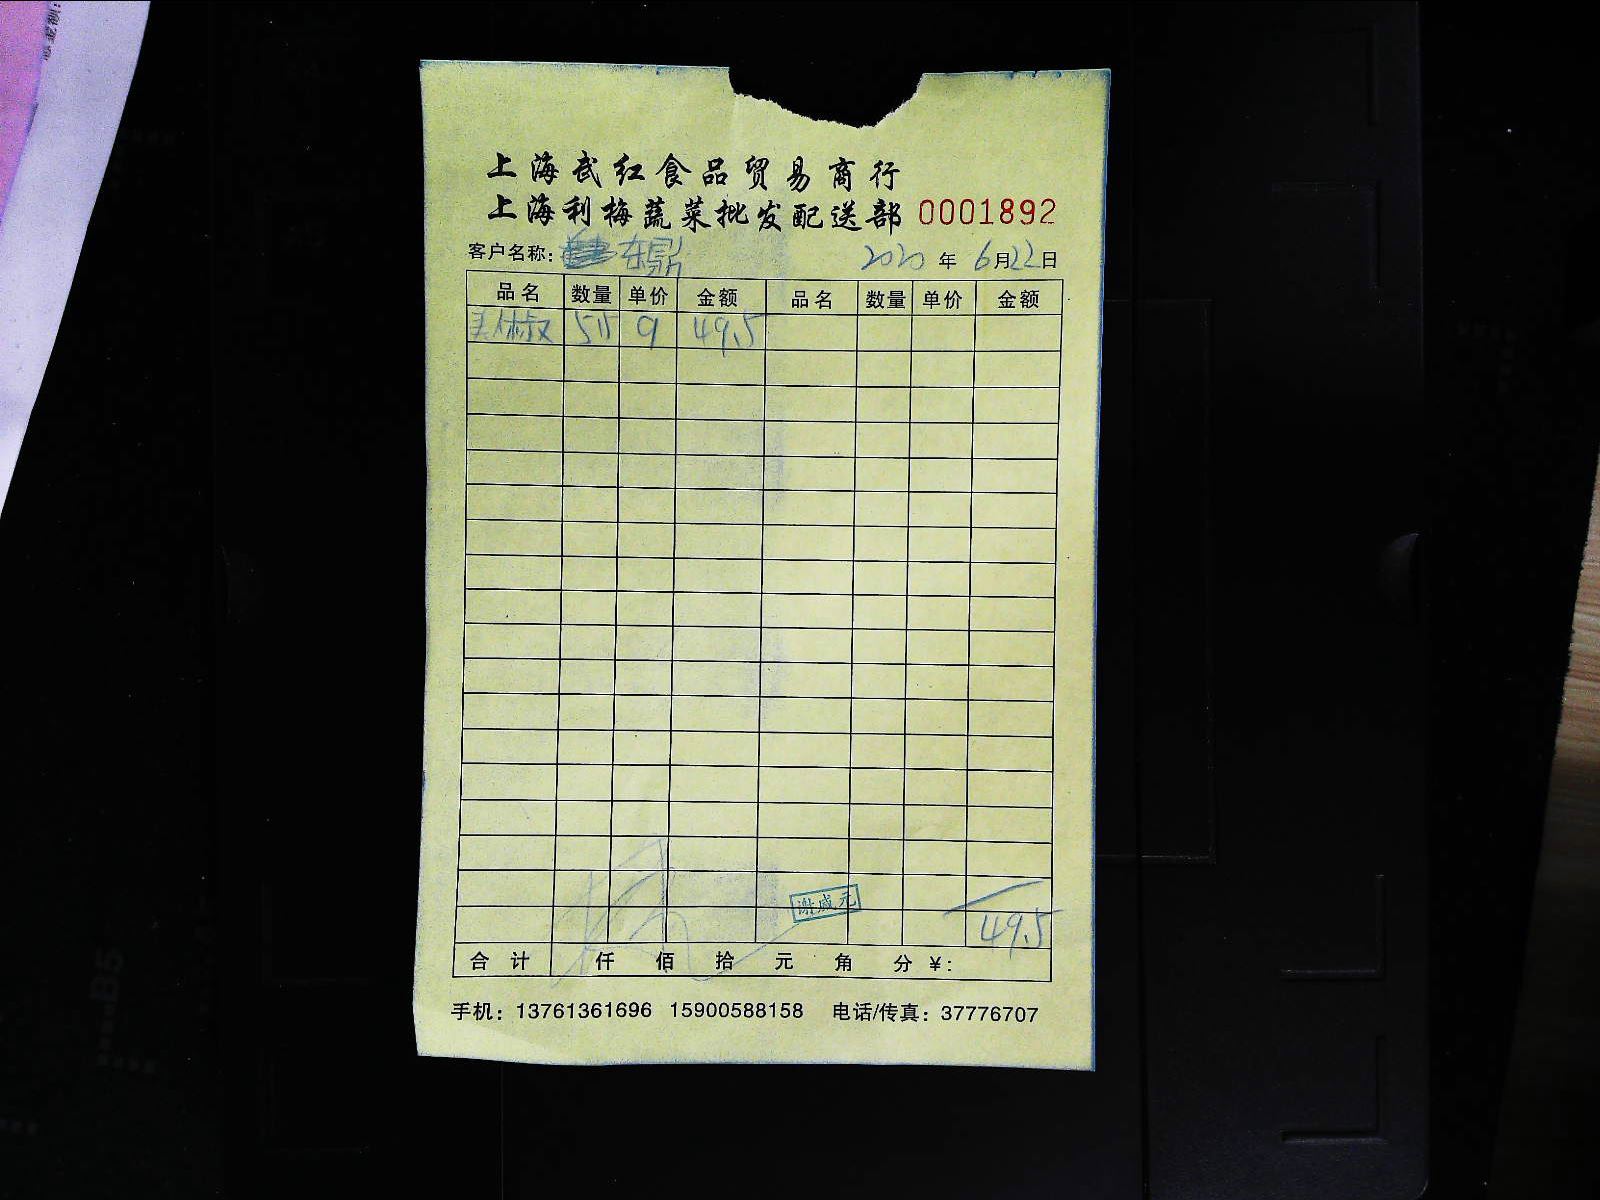 上海武红食品贸易商行
上海利梅蔬菜批发配送部 0001892
客户名称: 东鼎 2020年6月22日
品名 数量 单价 金额 品名 数量 单价 金额
美人椒 5.5 9 49.5
谢咸元
49.5
合计 仟 佰 拾 元 角 分 ¥:
手机: 13761361696 15900588158 电话/传真: 37776707
B5